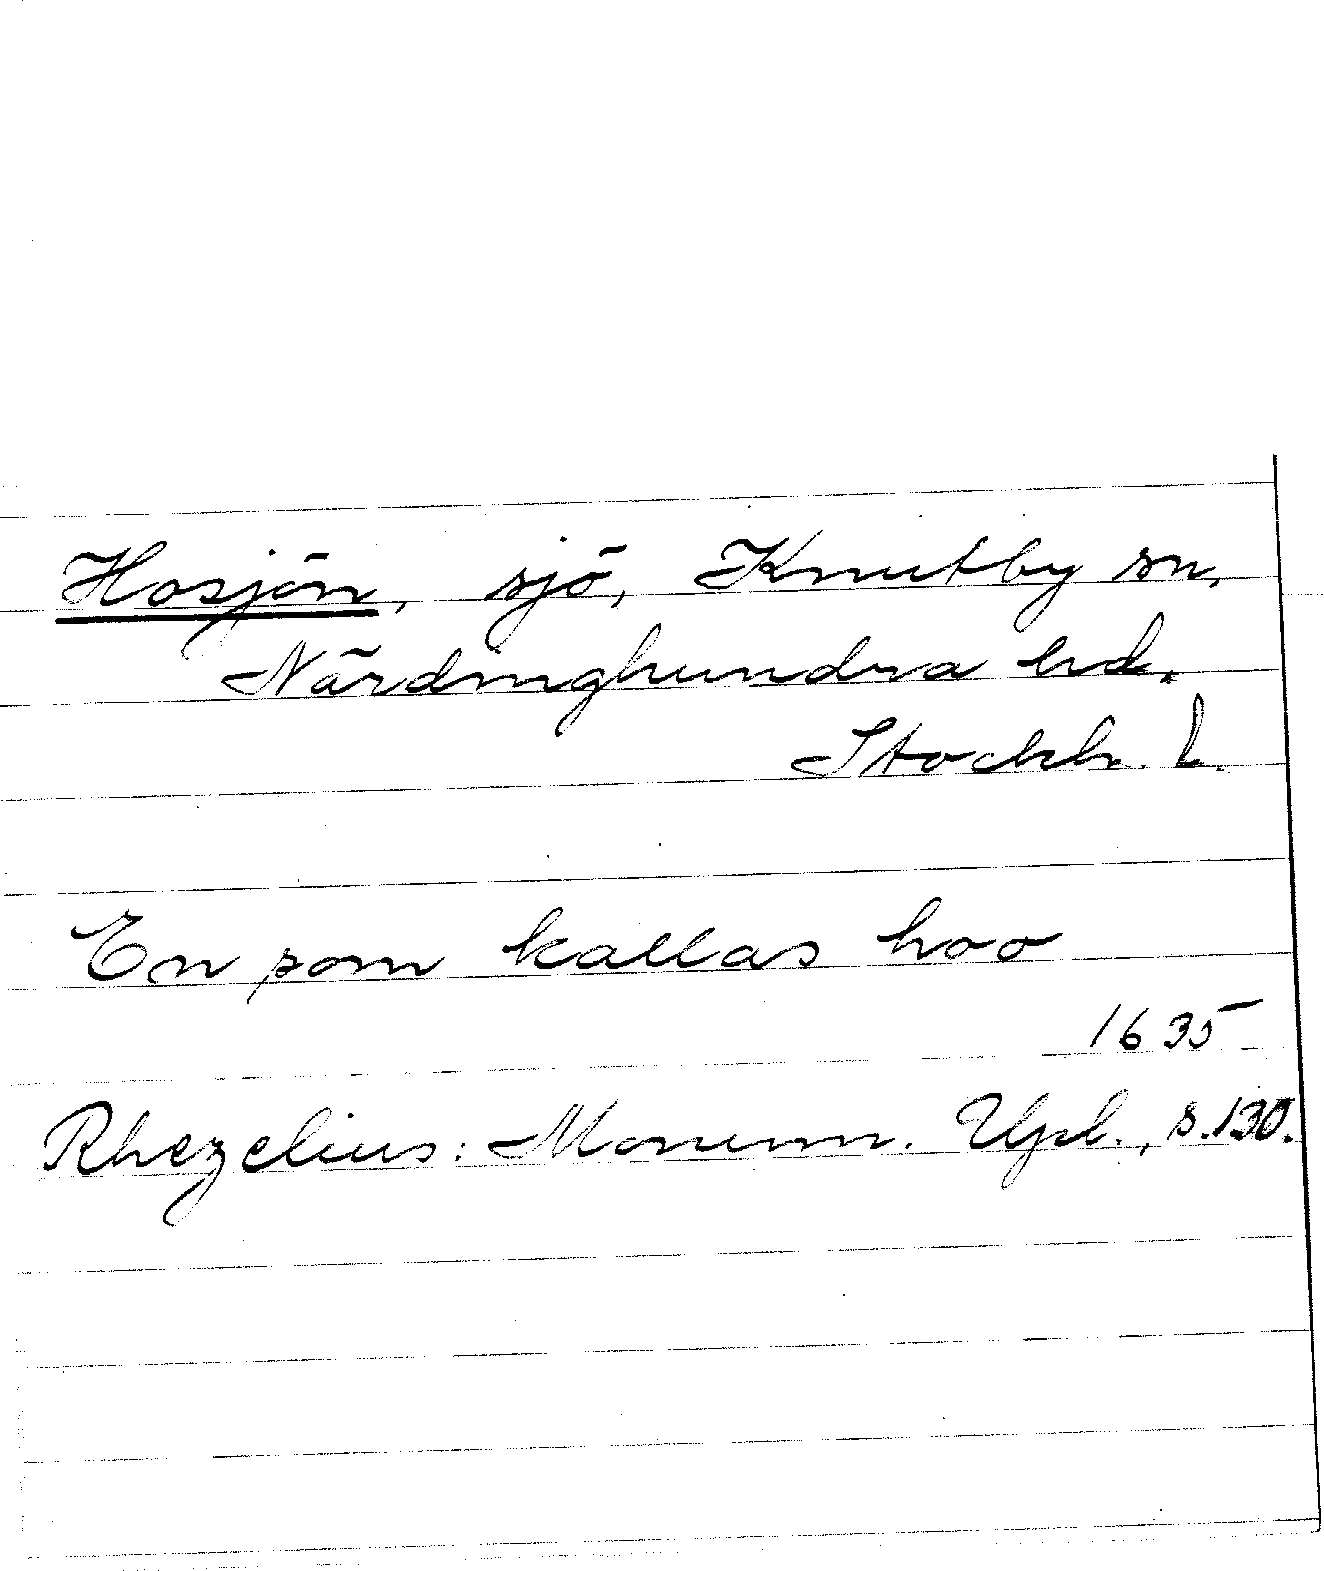 Hosjön, sjö, Knutby sn,
Närdinghundra hd.
Stockh. l.
En som kallas hoo
1635
Rhezelius: Monum. Upl., s. 130.